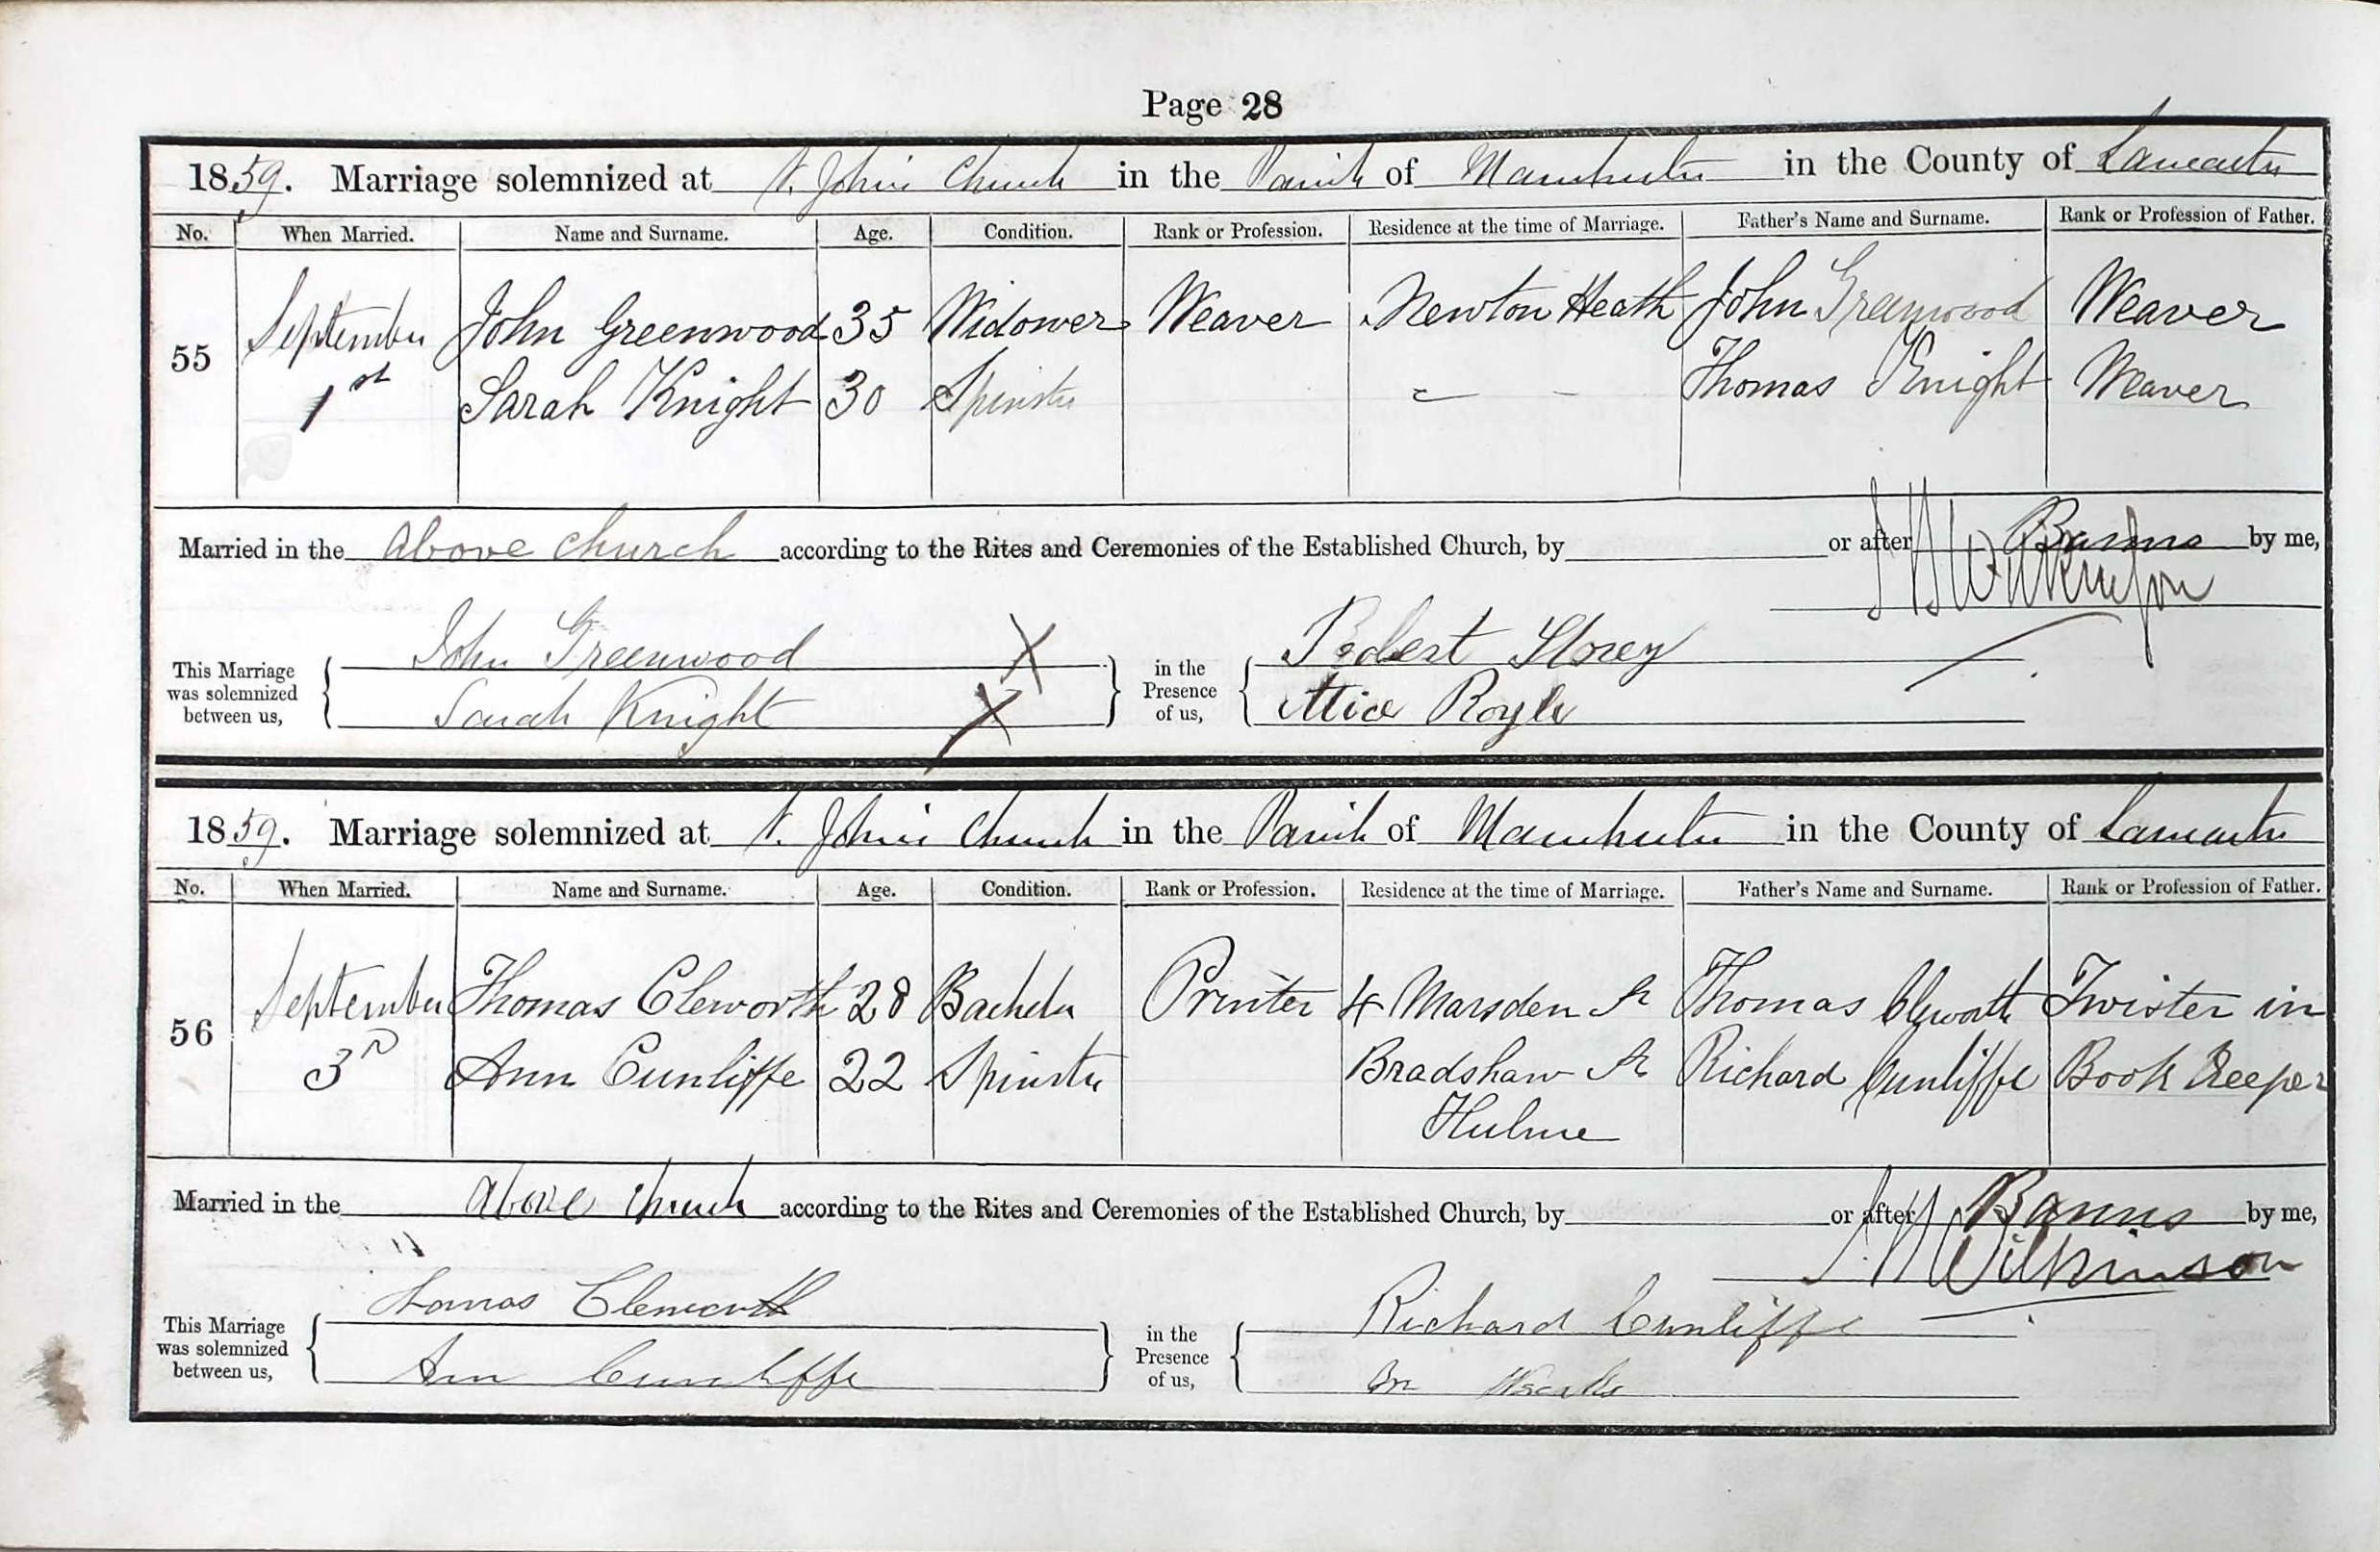 Page 28
1859. Marriage solemnized at St. John's Church in the Parish of Manchester in the County of Lancaster
No. When Married. Name and Surname. Age. Condition. Rank or Profession. Residence at the time of Marriage. Father's Name and Surname. Rank or Profession of Father.
55 September John Greenwood 35 Widower Weaver Newton Heath John Greenwood Weaver
1st Sarah Knight 30 Spinster Thomas Knight Weaver
Married in the above church according to the Rites and Ceremonies of the Established Church, by or after Banns by me,
Wilkinson
This Marriage was solemnized between us,
John Greenwood X
Sarah Knight X
in the Presence of us,
Robert Storey
Alice Royle
1859. Marriage solemnized at St. John's Church in the Parish of Manchester in the County of Lancaster
No. When Married. Name and Surname. Age. Condition. Rank or Profession. Residence at the time of Marriage. Father's Name and Surname. Rank or Profession of Father.
56 September Thomas Cleworth 28 Bachelor Printer 4 Marsden St Thomas Cleworth Twister in
3rd Ann Cunliffe 22 Spinster Bradshaw St Richard Cunliffe Book Keeper
Hulme
Married in the above church according to the Rites and Ceremonies of the Established Church, by or after Banns by me,
Wilkinson
This Marriage was solemnized between us,
Thomas Cleworth
Ann Cunliffe
in the Presence of us,
Richard Cunliffe